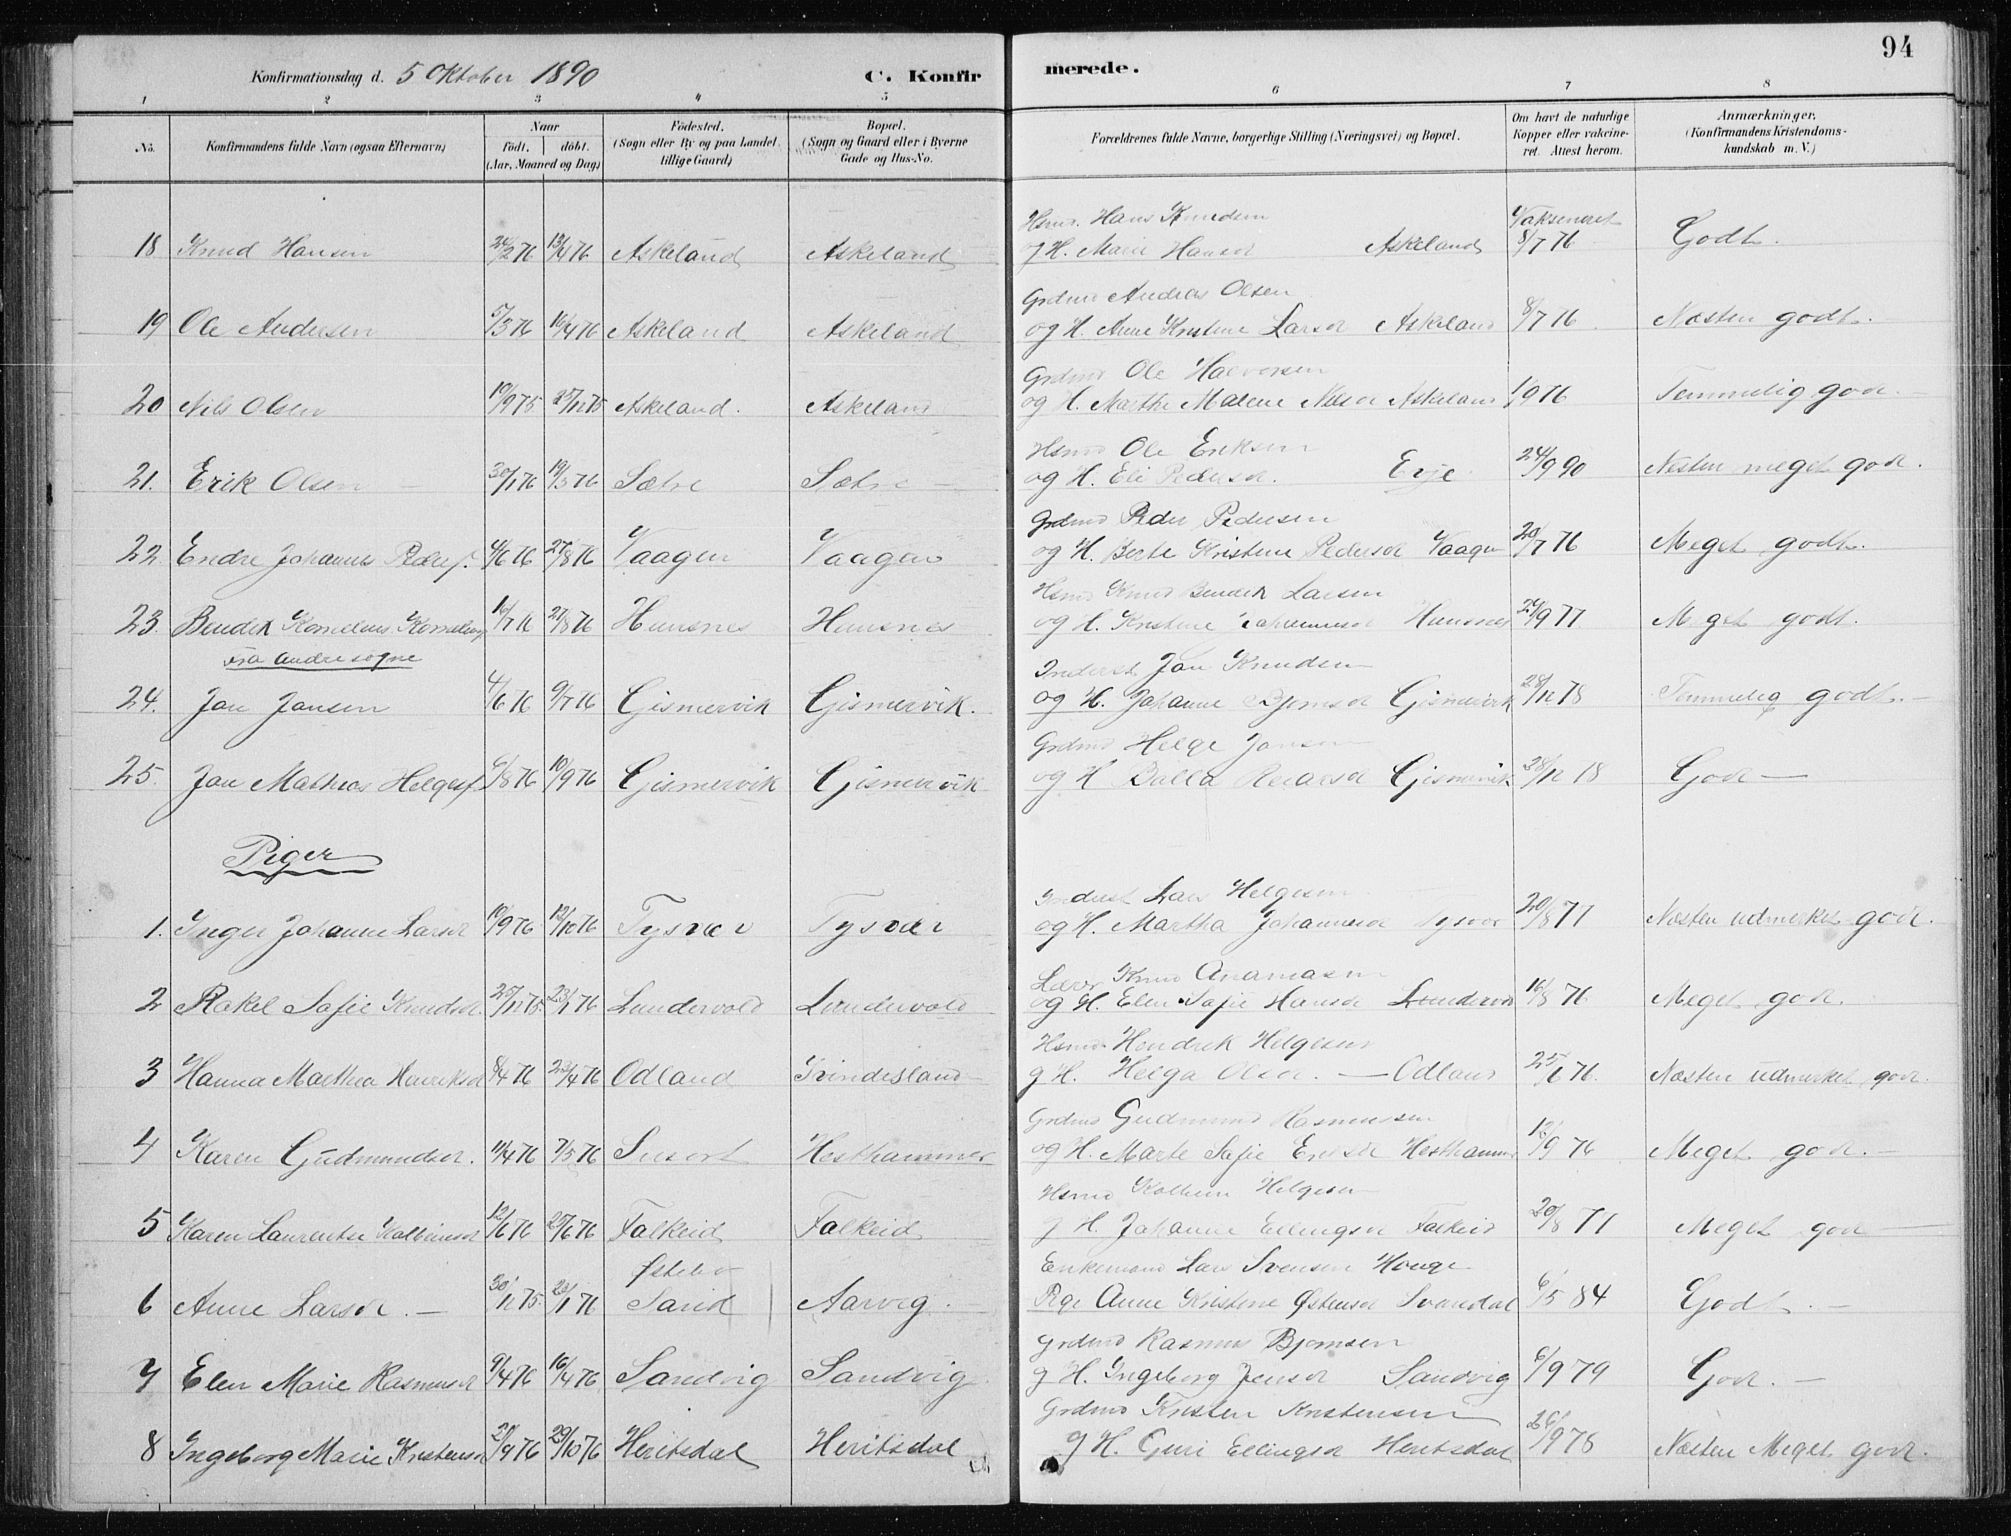 94
Konfirmationsdag d. 5 Oktober 1890 C. Konfirmerede.
1 2 3 4 5 6 7 8
No. Konfirmandens fulde Navn (ogsaa Efternavn) Naar født. døbt. (Aar, Maaned og Dag) Fødested. (Sogn eller By og paa Landet tillige Gaard) Bopæl. (Sogn og Gaard eller i Byerne Gade og Hus-No. Forældrenes fulde Navne, borgerlige Stilling (Næringsvei) og Bopæl. Om havt de naturlige Kopper eller vakcineret. Attest herom. Anmærkninger, (Konfirmandens Kristendomskundskab m.V.)
Hsmd. Hans Knudsen Vaksineret
18 Knud Hansen 24/2 76 13/4 76 Askeland Askeland og H. Marie Hansd Askeland 8/7 76 Godt.
Grdmd Andreas Olsen
19 Ole Andersen 5/3 76 16/4 76 Askeland Askeland og H. Anne Kristine Larsd Askeland 8/7 76 Næsten godt.
Grdmd Ole Halvorsen
20 Nils Olsen 19/9 75 25/12 75 Askeland. Askeland og H. Marthe Malene Nilsd Askeland 1/9 76 Temmelig godt.
Hsmd Ole Eriksen
21. Erik Olsen 30/1 76 19/3 76 Sætre Sætre og H. Eli Pedersd. Erje 24/9 90 Næsten meget godt.
Grdmd Peder Pedersen
22 Endre Johannes Peders. 4/6 76 27/8 76 Vaagen Vaagen og H. Berte Kristine Pedersd Vaagen 20/7 76 Meget godt.
Hsmd Knud Bendik Larsen
23. Bendik Kornelius 16/7 76 27/8 76 Hunsnes Hunsnes og H. Kristine Johannesd Hunsnes 24/9 77 Meget godt.
Fra andre sogne
Inderst Jan Knudsen
24. Jan Jansen 4/6 76 9/7 76 Gismervik Gismervik. og H. Johanne Bjornsd Gismervik 28/12 78 Temmelig godt.
Grdmd Helge Jansen
25. Jan Mathias Helges. 6/8 76 10/9 76 Gismervik Gismervik og H Gismervik 28/12 78 Godt
Piger
Inderst Lars Helgesen
1. Inger Johanne Larsd 10/9 76 12/10 76 Tysvær Tysvær og H. Martha Johannesd Tysvær 20/8 77 Næsten udmerket godt.
Lærer Knud
2 Rakel Sofie Knudsd. 25/12 75. 23/1 76 Lundervold Lundervold og H. Elen Sofie Hansd Lundervold 16/8 76 Meget godt.
Hsmd. Hendrik Helgesen
3 Hanna Malthea Henriksd 8/4 76 23/4 76 Odland og H. Helga Olsd. Odland 25/6 76. Næsten udmerket godt.
Grdmd Gudmund Rasmussen
4 Karen Gudmundsd. 11/4 76 7/5 76 Susort Hesthammer og H. Marte Sofie Eriksd Hesthammer 12/9 76 Meget godt.
Hsmd Kolbein Helgesen
5 Karen Laurentse Kolbeinsd 12/6 76 25/6 76 Falkeid Falkeid og H. Johanne Ellingsd Falkeid 20/8 77 Meget godt
Østebø Enkemand Lars Svensen Houge
6 Anne Larsd. 30/12 75. 23/1 76 Sand Aarveg. Pige Anne Kristine Østensd Svandal 6/5 84 Godt.
Grdmd Rasmus Bjornsen
7 Elen Marie Rasmusd 9/4 76 16/4 76 Sandvig Sandvig og H. Ingeborg Jensd Sandvig 6/9 79 Godt.
Grdmd Kristen Kristensen
8 Ingeborg Marie Kristensd 21/9 76 29/10 76 Heritsdal Heritsdal og H. Guri Ellingsd Heritsdal 26/9 78 Næsten Meget godt.